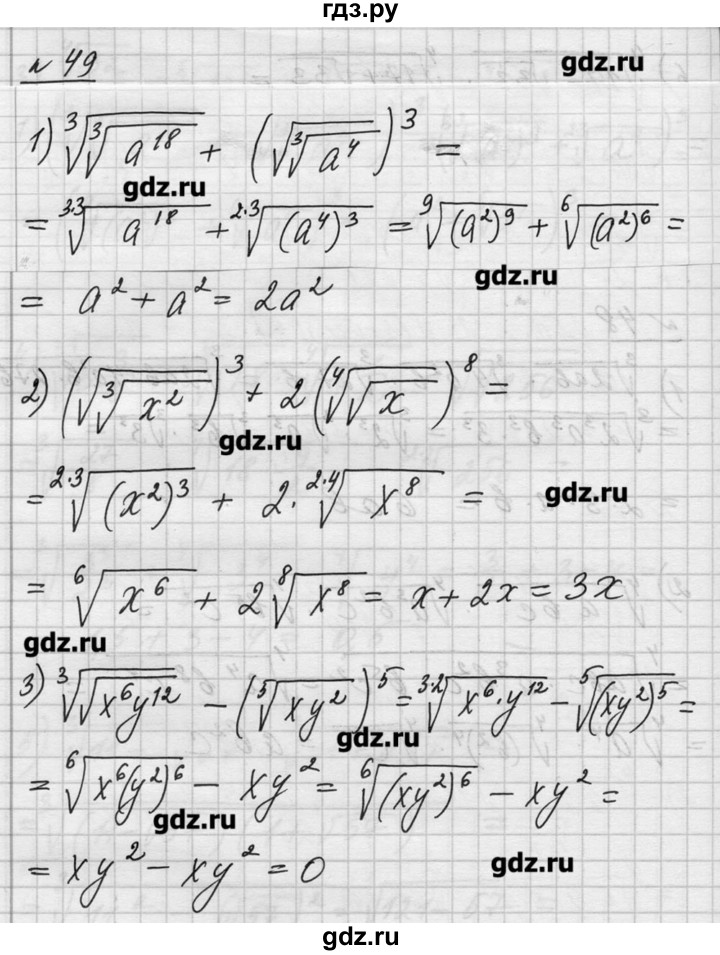 гдз.ру
№ 49
gdz.ru
1) ∛(∛(a^18)) + (√(∛(a^4)))^3 =
gdz.ru
= ^{3·3}√(a^18) + ^{2·3}√((a^4)^3) = ^9√((a^2)^9) + ^6√((a^2)^6) =
gdz.ru
= a^2 + a^2 = 2a^2
2) (√(∛(x^2)))^3 + 2(∜(√x))^8 =
gdz.ru
= ^{2·3}√((x^2)^3) + 2·^{2·4}√(x^8) =
gdz.ru
= ^6√(x^6) + 2 ^8√(x^8) = x + 2x = 3x
gdz.ru
3) ∛(√(x^6y^12)) - (^5√(xy^2))^5 = ^{3·2}√(x^6·y^12) - ^5√((xy^2)^5) =
gdz.ru
= ^6√(x^6(y^2)^6) - xy^2 = ^6√((xy^2)^6) - xy^2 =
gdz.ru
= xy^2 - xy^2 = 0
gdz.ru
gdz.ru